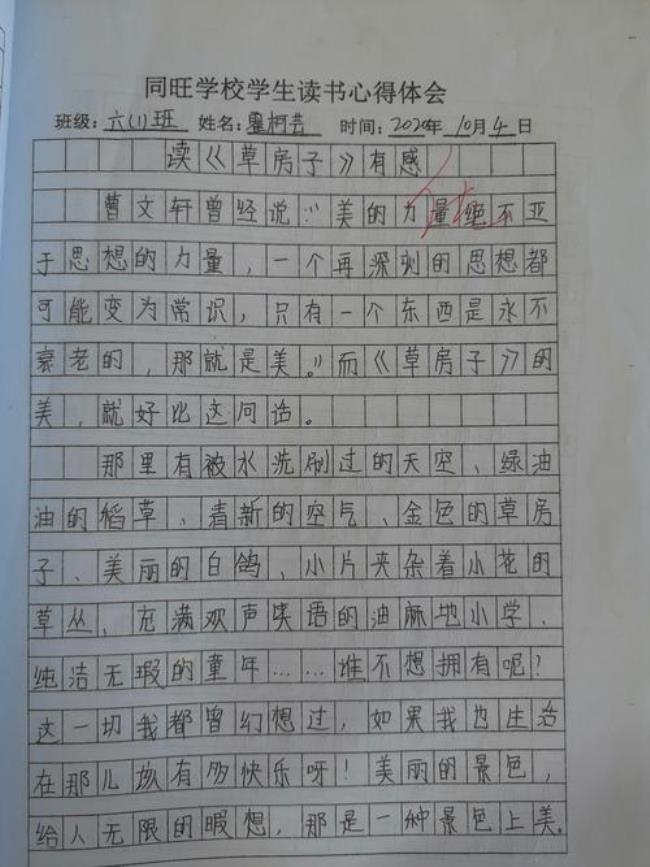 同旺学校学生读书心得体会
班级:六(1)班 姓名:瞿柯芸 时间:2020年10月4日
读《草房子》有感
曹文轩曾经说:“美的力量绝不亚
于思想的力量,一个再深刻的思想都
可能变为常识,只有一个东西是永不
衰老的,那就是美。”而《草房子》的
美,就好比这问话。
那里有被水洗刷过的天空、绿油
油的稻草、清新的空气、金色的草房
子、美丽的白鸽、小片夹杂着小花的
草丛、充满欢声笑语的油麻地小学、
纯洁无瑕的童年……谁不想拥有呢?
这一切我都曾幻想过,如果我也生活
在那儿该有多快乐呀!美丽的景色,
给人无限的暇想,那是一种景色上美。